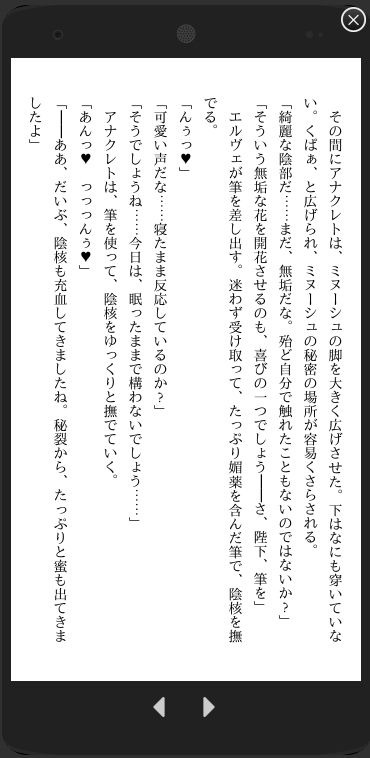 その間にアナクレトは、ミヌーシュの脚を大きく広げさせた。下はなにも穿いていな
い。くぱぁ、と広げられ、ミヌーシュの秘密の場所が容易くさらされる。
「綺麗な陰部だ……まだ、無垢だな。殆ど自分で触れたこともないのではないか？」
「そういう無垢な花を開花させるのも、喜びの一つでしょう――さ、陛下、筆を」
エルヴェが筆を差し出す。迷わず受け取って、たっぷり媚薬を含んだ筆で、陰核を撫
でる。
「んぅっ♥」
「可愛い声だな……寝たまま反応しているのか？」
「そうでしょうね……今日は、眠ったままで構わないでしょう……」
アナクレトは、筆を使って、陰核をゆっくりと撫でていく。
「あんっ♥　っっっんぅ♥」
「――ああ、だいぶ、陰核も充血してきましたね。秘裂から、たっぷりと蜜も出てきま
したよ」